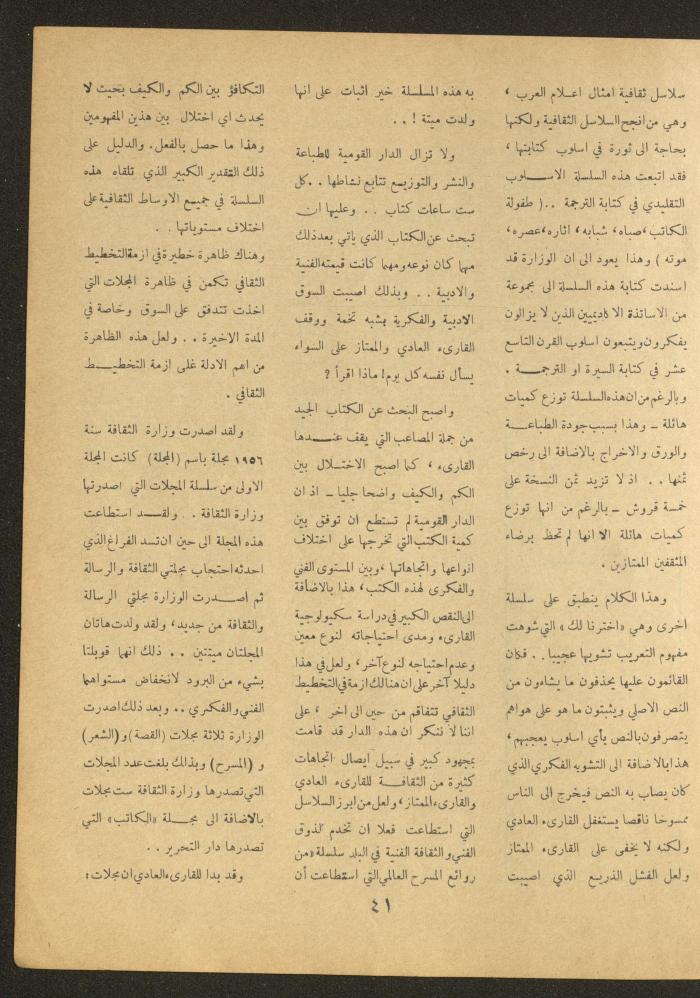 سلاسل ثقافية امثال اعلام العرب ،
وهي من انجح السلاسل الثقافية ولكنها
بحاجة الى ثورة في اسلوب كتابتها ،
فقد اتبعت هذه السلسلة الاسـلوب
التقليدي في كتابة الترجمة ..( طفولة
الكاتب ، صباه ، شبابه ، اثاره ، عصره ،
موته ) وهذا يعود الى ان الوزارة قد
اسندت كتابة هذه السلسلة الى مجموعة
من الاساتذة الاكاديميين الذين لا يزالون
يفكرون ويتبعون اسلوب القرن التاسع
عشر في كتابة السيرة او الترجمـة .
وبالرغم من ان هذه السلسلة توزع كميات
هائلة ـ وهذا بسبب جودة الطباعـة
والورق والاخراج بالاضافة الى رخص
ثمنها .. اذ لا تزيد ثمن النسخة على
خمسة قروش ـ بالرغم من انها توزع
كميات هائلة الا انها لم تحظ برضاء
المثقفين الممتازين .
وهذا الكلام ينطبق على سلسلة
اخرى وهي «اخترنا لك» التي شوهت
مفهوم التعريب تشويها عجيبا .. فكان
القائمون عليها يحذفون ما يشاءون من
النص الاصلي ويثبتون ما هو على هواهم
يتصرفون بالنص بأي اسلوب يعجبهم ،
هذا بالاضافة الى التشويه الفكري الذي
كان يصاب به النص فيخرج الى الناس
ممسوخا ناقصا يستغفل القارىء العادي
ولكنه لا يخفى على القارىء الممتاز
ولعل الفشل الذريع الذي اصيبت
به هذه المسلسلة خير اثبات على انها
ولدت ميتة ! ..
ولا تزال الدار القومية للطباعة
والنشر والتوزيع تتابع نشاطها .. كل
ست ساعات كتاب .. وعليها ان
تبحث عن الكتاب الذي ياتي بعد ذلك
مهما كان نوعه ومهما كانت قيمته الفنية
والادبية .. وبذلك اصيبت السوق
الادبية والفكرية بشبه تخمة ووقف
القارىء العادي والممتاز على السواء
يسأل نفسه كل يوم ! ماذا اقرأ ؟
واصبح البحث عن الكتاب الجيد
من جملة المصاعب التي يقف عنـدها
القارىء ، كما اصبح الاختـلال بين
الكم والكيف واضحا جليا ـ اذ ان
الدار القومية لم تستطع ان توفق بين
كمية الكتب التي تخرجها على اختلاف
انواعها واتجاهاتها ، وبين المستوى الفني
والفكري لهذه الكتب ، هذا بالاضافة
الى النقص الكبير في دراسة سكيولوجية
القارىء ومدى احتياجاته لنوع معين
وعدم احتياجه لنوع آخر ، ولعل في هذا
دليلا آخر على ان هنالك ازمة في التخطيط
الثقافي تتفاقم من حين الى اخر ، على
اننا لا ننكر ان هذه الدار قد قامت
بمجهود كبير في سبيل ايصال اتجاهات
كثيرة من الثقافـة للقارىء العادي
والقارىء الممتاز ، ولعل من ابرز السلاسل
التي استطاعت فعلا ان تخدم الذوق
الفني والثقافة الفنية في البلد سلسلة «من
روائع المسرح العالمي التي استطاعت أن
التكافؤ بين الكم والكيف بحيث لا
يحدث اي اختلال بين هذين المفهومين
وهذا ما حصل بالفعل . والدليل على
ذلك التقدير الكبير الذي تلقاه هذه
السلسلة في جميع الاوساط الثقافية على
اختلاف مستوياتها ..
وهناك ظاهرة خطيرة في ازمة التخطيط
الثقافي تكمن في ظاهرة المجلات التي
اخذت تتدفق على السوق وخاصة في
المدة الاخيرة .. ولعل هذه الظاهرة
من اهم الادلة على ازمة التخطيـط
الثقافي .
ولقد اصدرت وزارة الثقافة سنة
١٩٥٦ مجلة باسم (المجلة) كانت المجلة
الاولى من سلسلة المجلات التي اصدرتها
وزارة الثقافة .. ولقـد استطاعت
هذه المجلة الى حين ان تسد الفراغ الذي
احدثه احتجاب مجلتي الثقافة والرسالة
ثم اصـدرت الوزارة مجلتي الرسالة
والثقافة من جديد ، ولقد ولدت هاتان
المجلتان ميتتين .. ذلك انهما قوبلتا
بشيء من البرود لانخفاض مستواهما
الفني والفكري .. وبعد ذلك اصدرت
الوزارة ثلاثة مجلات (القصة) و(الشعر)
و (المسرح) وبذلك بلغت عدد المجلات
التي تصدرها وزارة الثقافة ست مجلات
بالاضافة الى مجـلة «الكاتب» التي
تصدرها دار التحرير ..
وقد بدا للقارىء العادي ان مجلات :
٤١